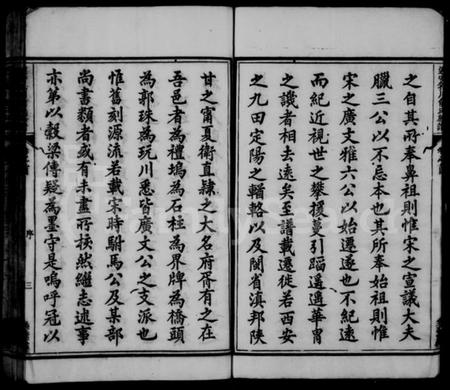 之自其所奉鼻祖則惟宋之宣議大夫
臘三公以不忘本也其所奉始祖則惟
宋之廣文雅六公以始遷遂也不紀遠
而紀近視世之攀援蔓引蹈遥遥華胄
之譏者相去遠矣至譜載遷徙若西安
之九田定陽之輶輅以及閩省滇邦陝
甘之甯夏衛直隸之大名府胥有之在
吾邑者為禮塢為石柱為界牌為橋頭
為郭珠為玩川悉皆廣文公之支派也
惟舊刻源流若載宋時駙馬公及某部
尚書類者或有未盡所核然繼志述事
亦第以穀梁傳疑為墨守是嗚呼冠以
序
三